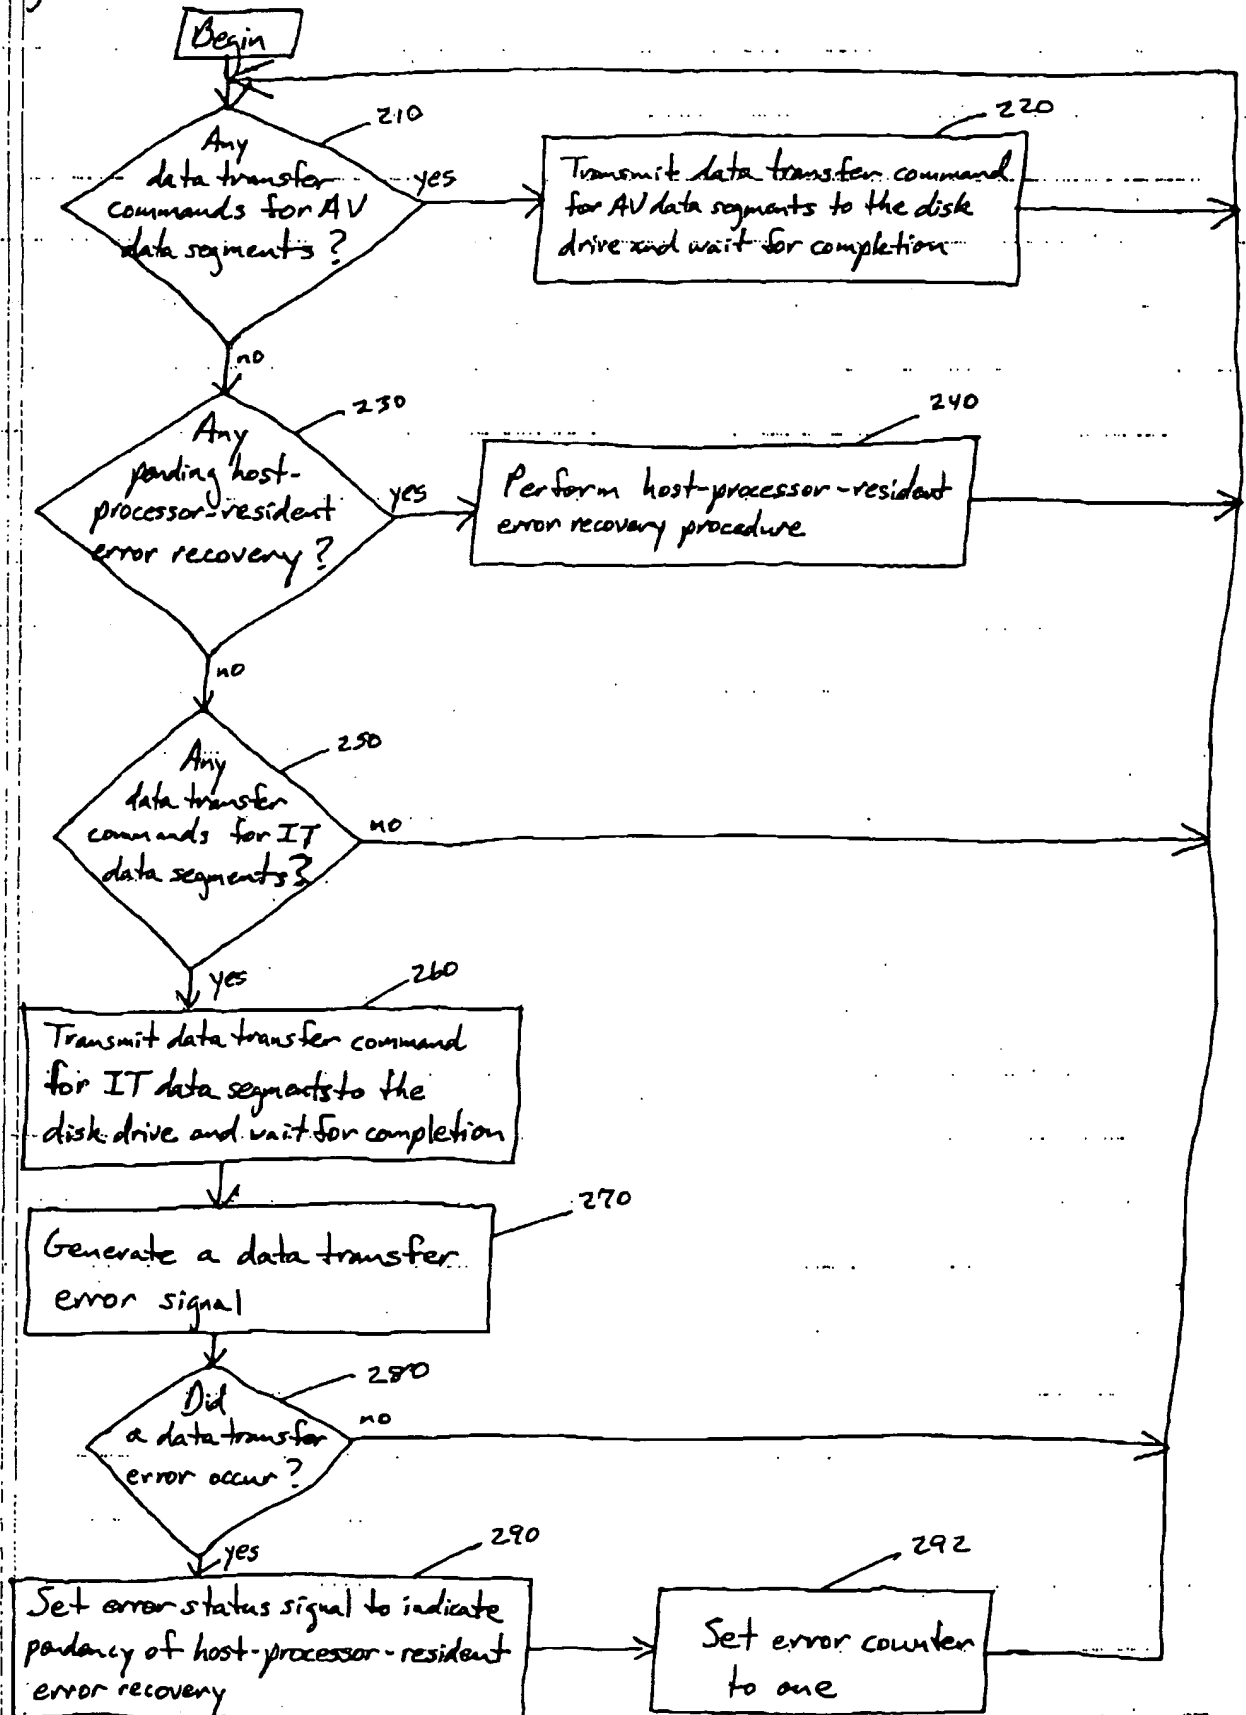 Begin
210
Any
data transfer
commands for AV
data segments?
yes
220
Transmit data transfer command
for AV data segments to the disk
drive and wait for completion
no
230
Any
pending host-
processor-resident
error recovery?
yes
240
Perform host-processor-resident
error recovery procedure
no
250
Any
data transfer
commands for IT
data segments?
no
yes
260
Transmit data transfer command
for IT data segments to the
disk drive and wait for completion
270
Generate a data transfer
error signal
280
Did
a data transfer
error occur?
no
yes
290
Set error status signal to indicate
pendency of host-processor-resident
error recovery
292
Set error counter
to one